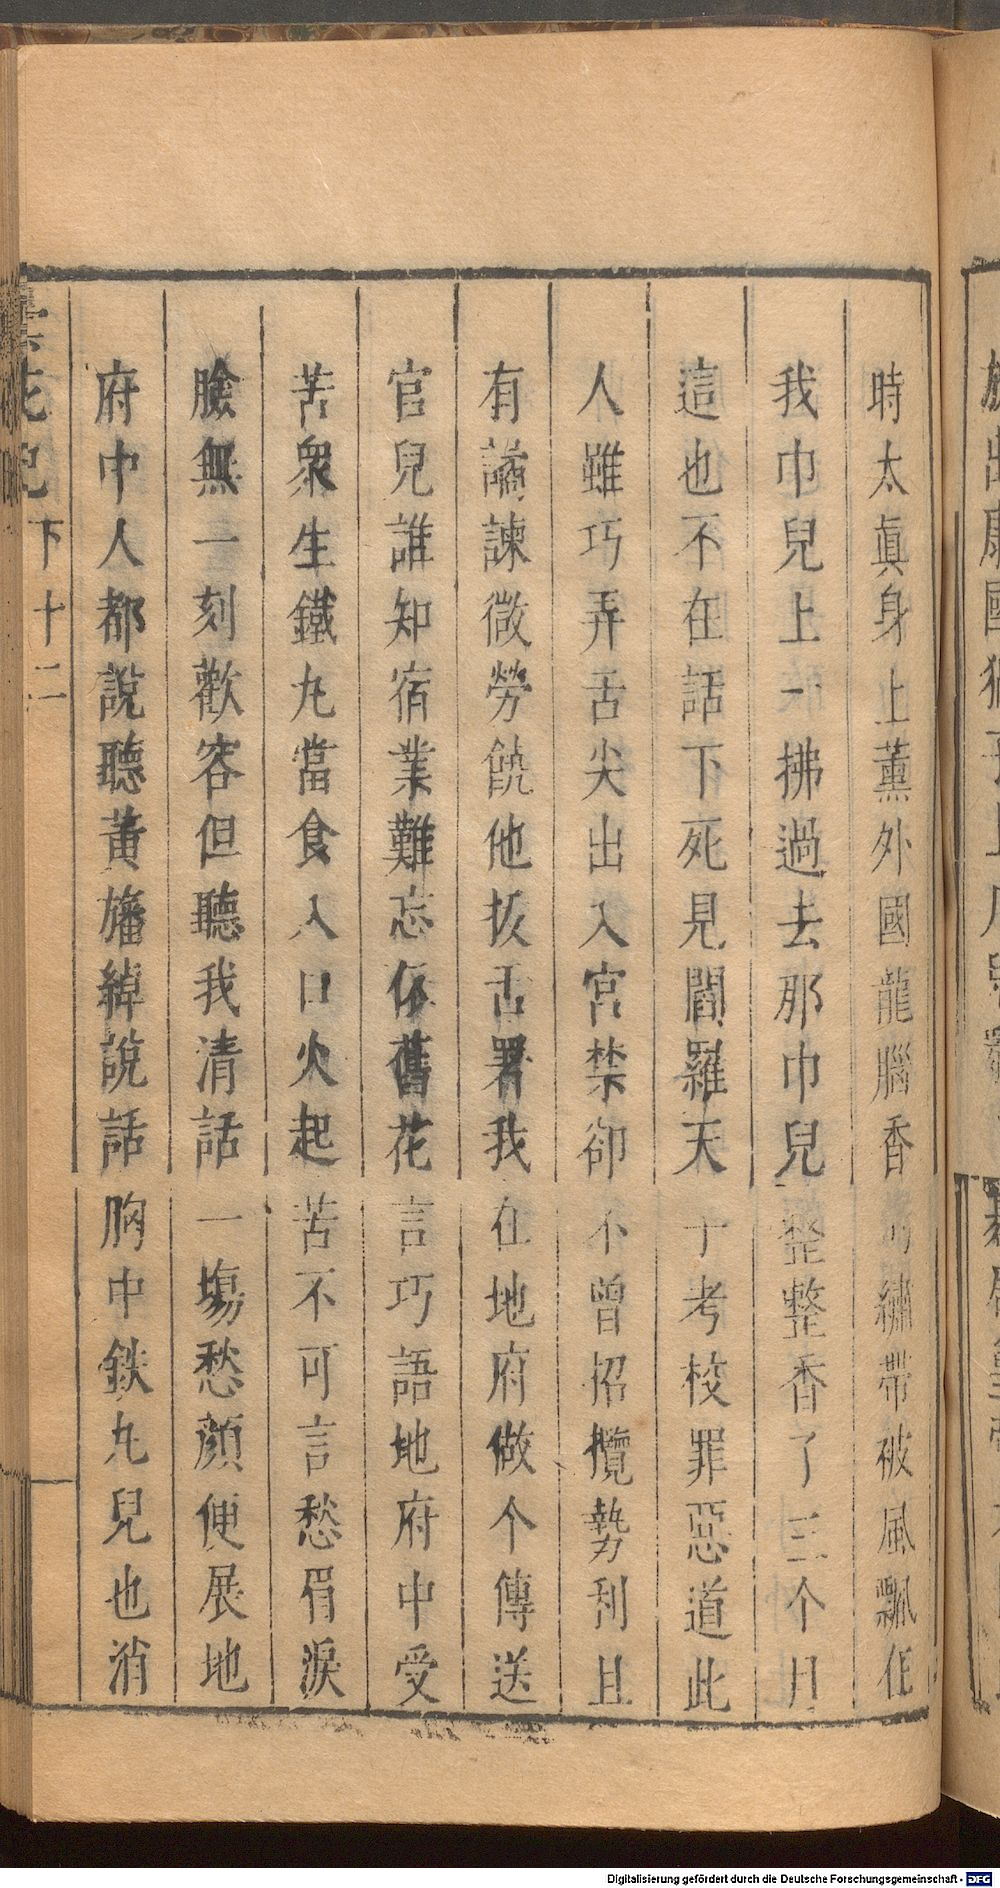 時太眞身上薰外國龍腦香繡帶被風飄在
我巾兒上一拂過去那巾兒整整香了三个月
這也不在話下死見閻羅天子考校罪惡道此
人雖巧弄舌尖出入宮禁卻不曾招攬勢利且
有譎諫微勞饒他拔舌署我在地府做个傳送
官兒誰知宿業難忘依舊花言巧語地府中受
苦衆生鐵丸當食入口火起苦不可言愁眉淚
臉無一刻歡容但聽我清話一塲愁顏便展地
府中人都說聽黃旛綽說話胸中鉄丸兒也消
曇花記 下 十二
Digitalisierung gefördert durch die Deutsche Forschungsgemeinschaft - DFG